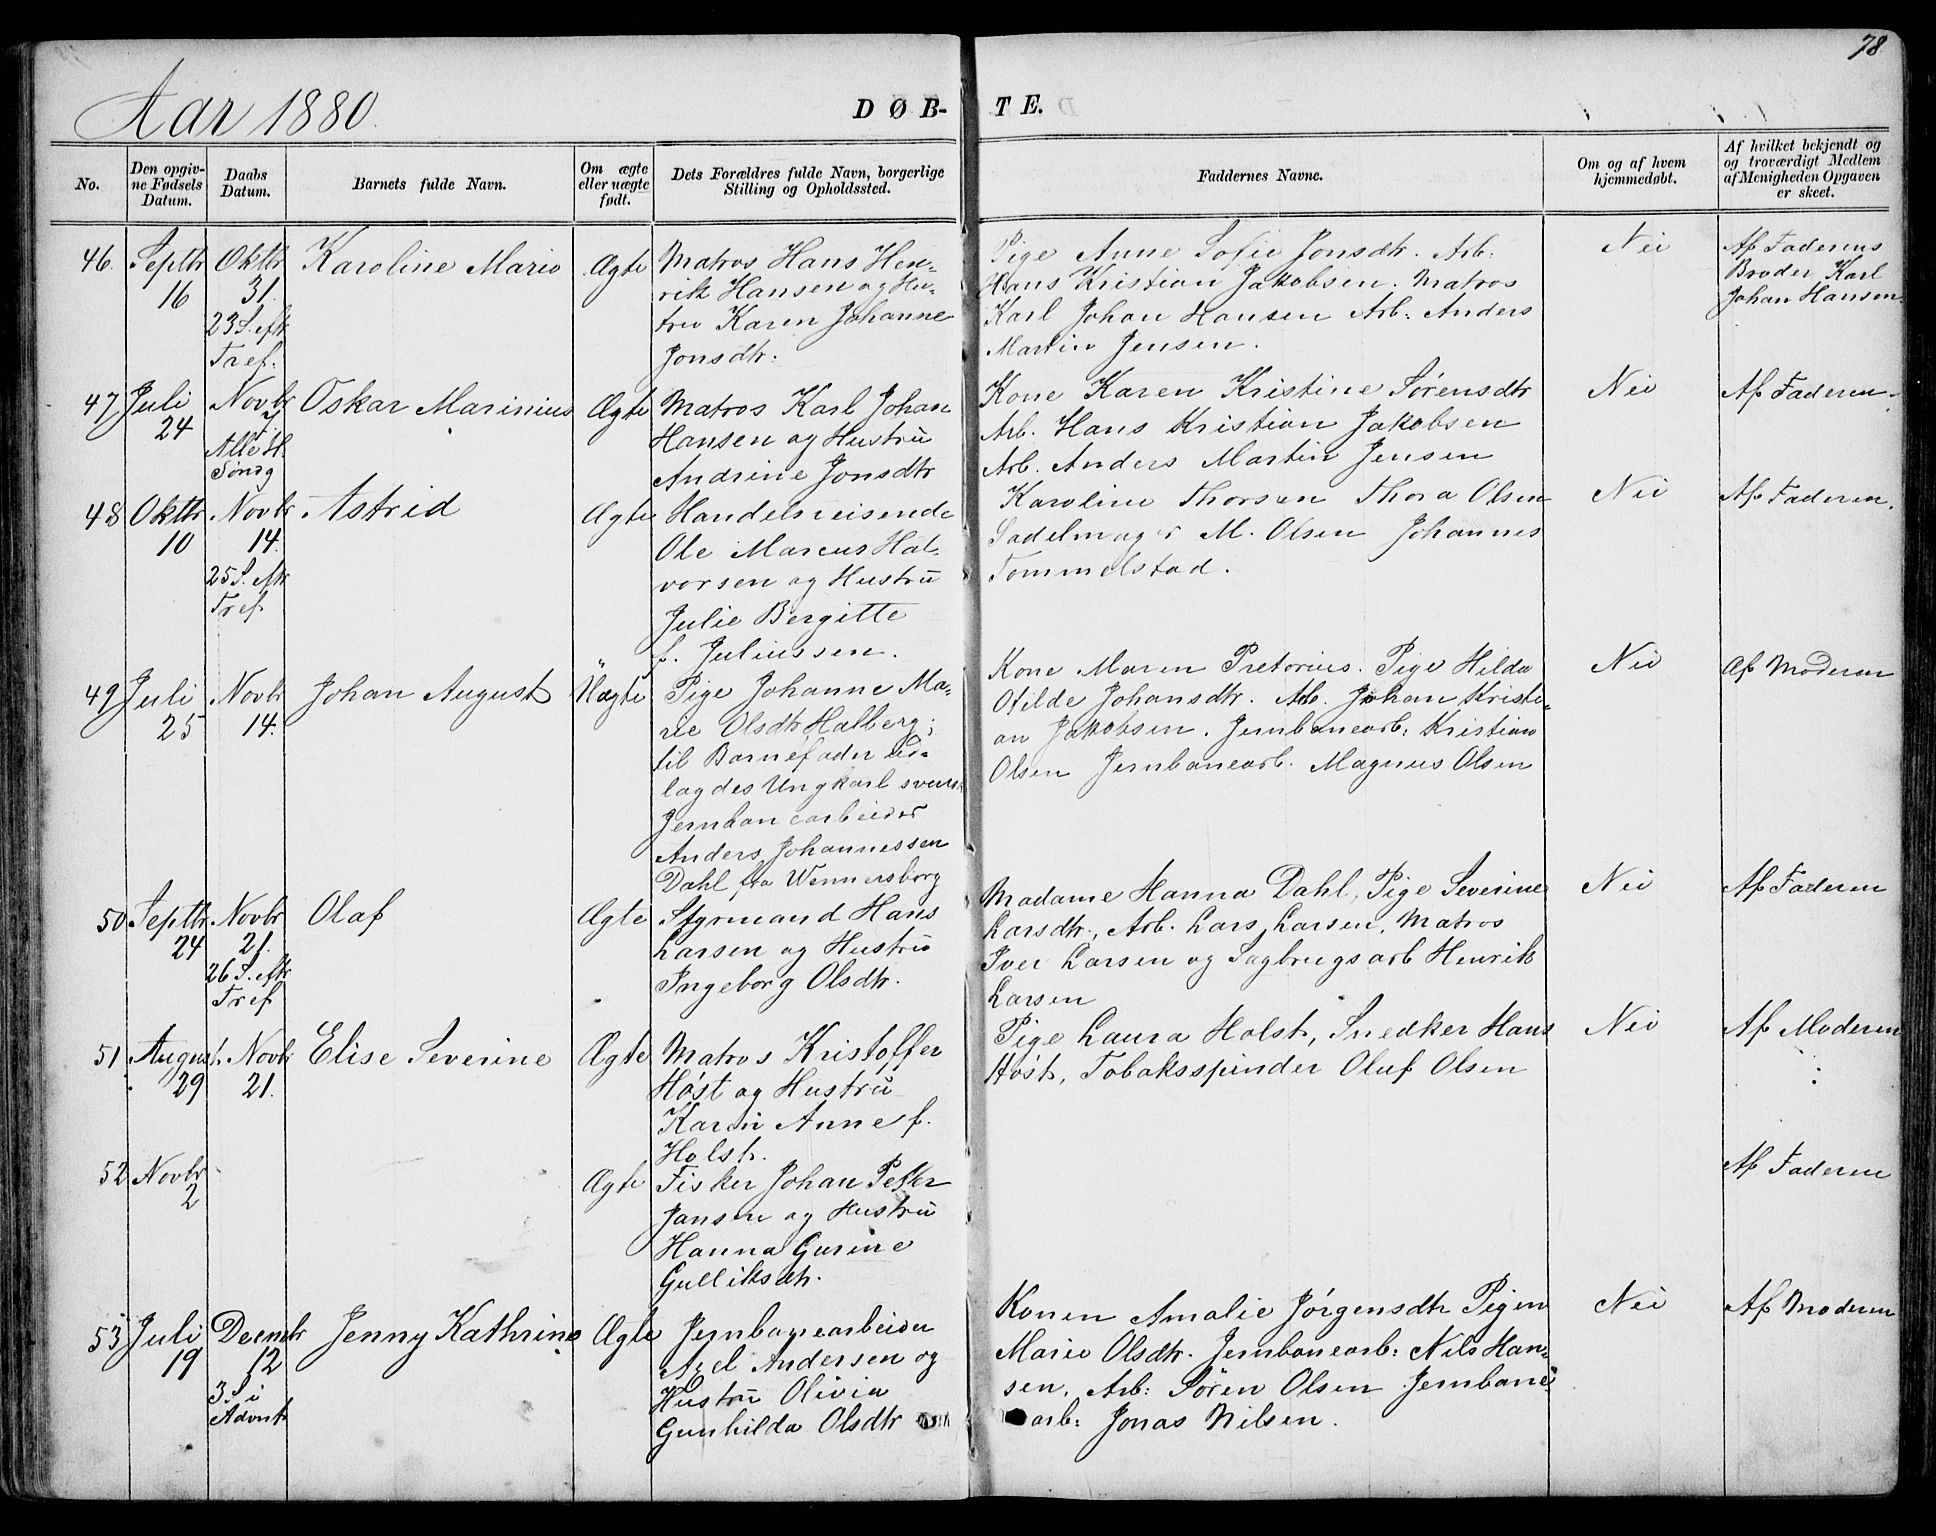 78
Aar 1880.
DØB-TE.
No.
Den opgiv-
ne Fødsels
Datum.
Daabs
Datum.
Barnets fulde Navn.
Om ægte
eller uægte
født.
Dets Forældres fulde Navn, borgerlige
Stilling og Opholdssted.
Faddernes Navne.
Om og af hvem
hjemmedøbt.
Af hvilket bekjendt og
og troværdigt Medlem
af Menigheden Opgaven
er skeet.
46.
Septbr
16
Oktbr
31.
23 S. eftr
Tref.
Karoline Marie
Ægte
Matros Hans Hen-
rik Hansen og Hu-
tru Karen Johanne
Jonsdtr.
Pige Anne Sofie Jonsdtr. Arb:
Hans Kristian Jakobsen. Matros
Karl Johan Hansen Arb: Anders
Martin Jensen.
Nei
Af Faderens
Broder Karl
Johan Hansen
47
Juli
24
Novbr
7
Alle H.
Søndg
Oskar Marinius
Ægte
Matros Karl Johan
Hansen og Hustru
Andrine Jonsdtr
Kone Karen Kristine Sørensdtr
Arb. Hans Kristian Jakobsen
Arb. Anders Martin Jensen
Nei
Af Faderen
48
Oktbr
10
Novbr
14.
25 S. eftr
Tref
Astrid
Ægte
Handelsreisende
Ole Marcus Hal-
vorsen og Hustru
Julie Bergitte
f. Juliussen.
Karoline Thorsen Thora Olsen
Sadelmager M. Olsen Johannes
Tommelstad.
Nei
Af Faderen.
49
Juli
25
Novbr
14.
Johan August
Uægte
Pige Johanne Ma-
rie Olsdtr Halberg;
til Barnefader ud-
lagdes Ungkarl svensk
Jernbanearbeider
Anders Johannessen
Dahl fra Wennersborg
Kone Maren Pretorius. Pige Hilda
Otilde Johansdtr. Arb. Johan Kristi-
an Jakobsen. Jernbanearb: Kristian
Olsen Jernbanearb. Magnus Olsen
Nei
Af Moderen
50
Septbr
24
Novbr
21.
26 S. eftr
Tref
Olaf
Ægte
Styrmand Hans
Larsen og Hustru
Ingeborg Olsdtr.
Madame Hanna Dahl, Pige Severine
Larsdtr., Arb. Lars Larsen, Matros
Iver Larsen og Sagbrugsarb Henrik
Larsen
Nei
Af Faderen
51
August.
29
Novbr
21.
Elise Severine
Ægte
Matros Kristoffer
Høst og Hustru
Karen Anne f.
Holst.
Pige Laura Holst, Snedker Hans
Høst, Tobaksspinder Oluf Olsen
Nei
Af Moderen
52
Novbr
2
Ægte
Fisker Johan Petter
Jansen og Hustru
Hanna Gurine
Gulliksdtr.
Af Faderen
53
Juli
19
Decmbr
12
3 S. i
Advent
Jenny Kathrine
Ægte
Jernbanearbeider
Axel Andersen og
Hustru Olivia
Gunhilda Olsdtr
Konen Amalie Jørgensdtr Pigen
Marie Olsdtr. Jernbanearb: Nils Han-
sen, Arb: Søren Olsen Jernbane
arb: Jonas Nilsen.
Nei
Af Moderen